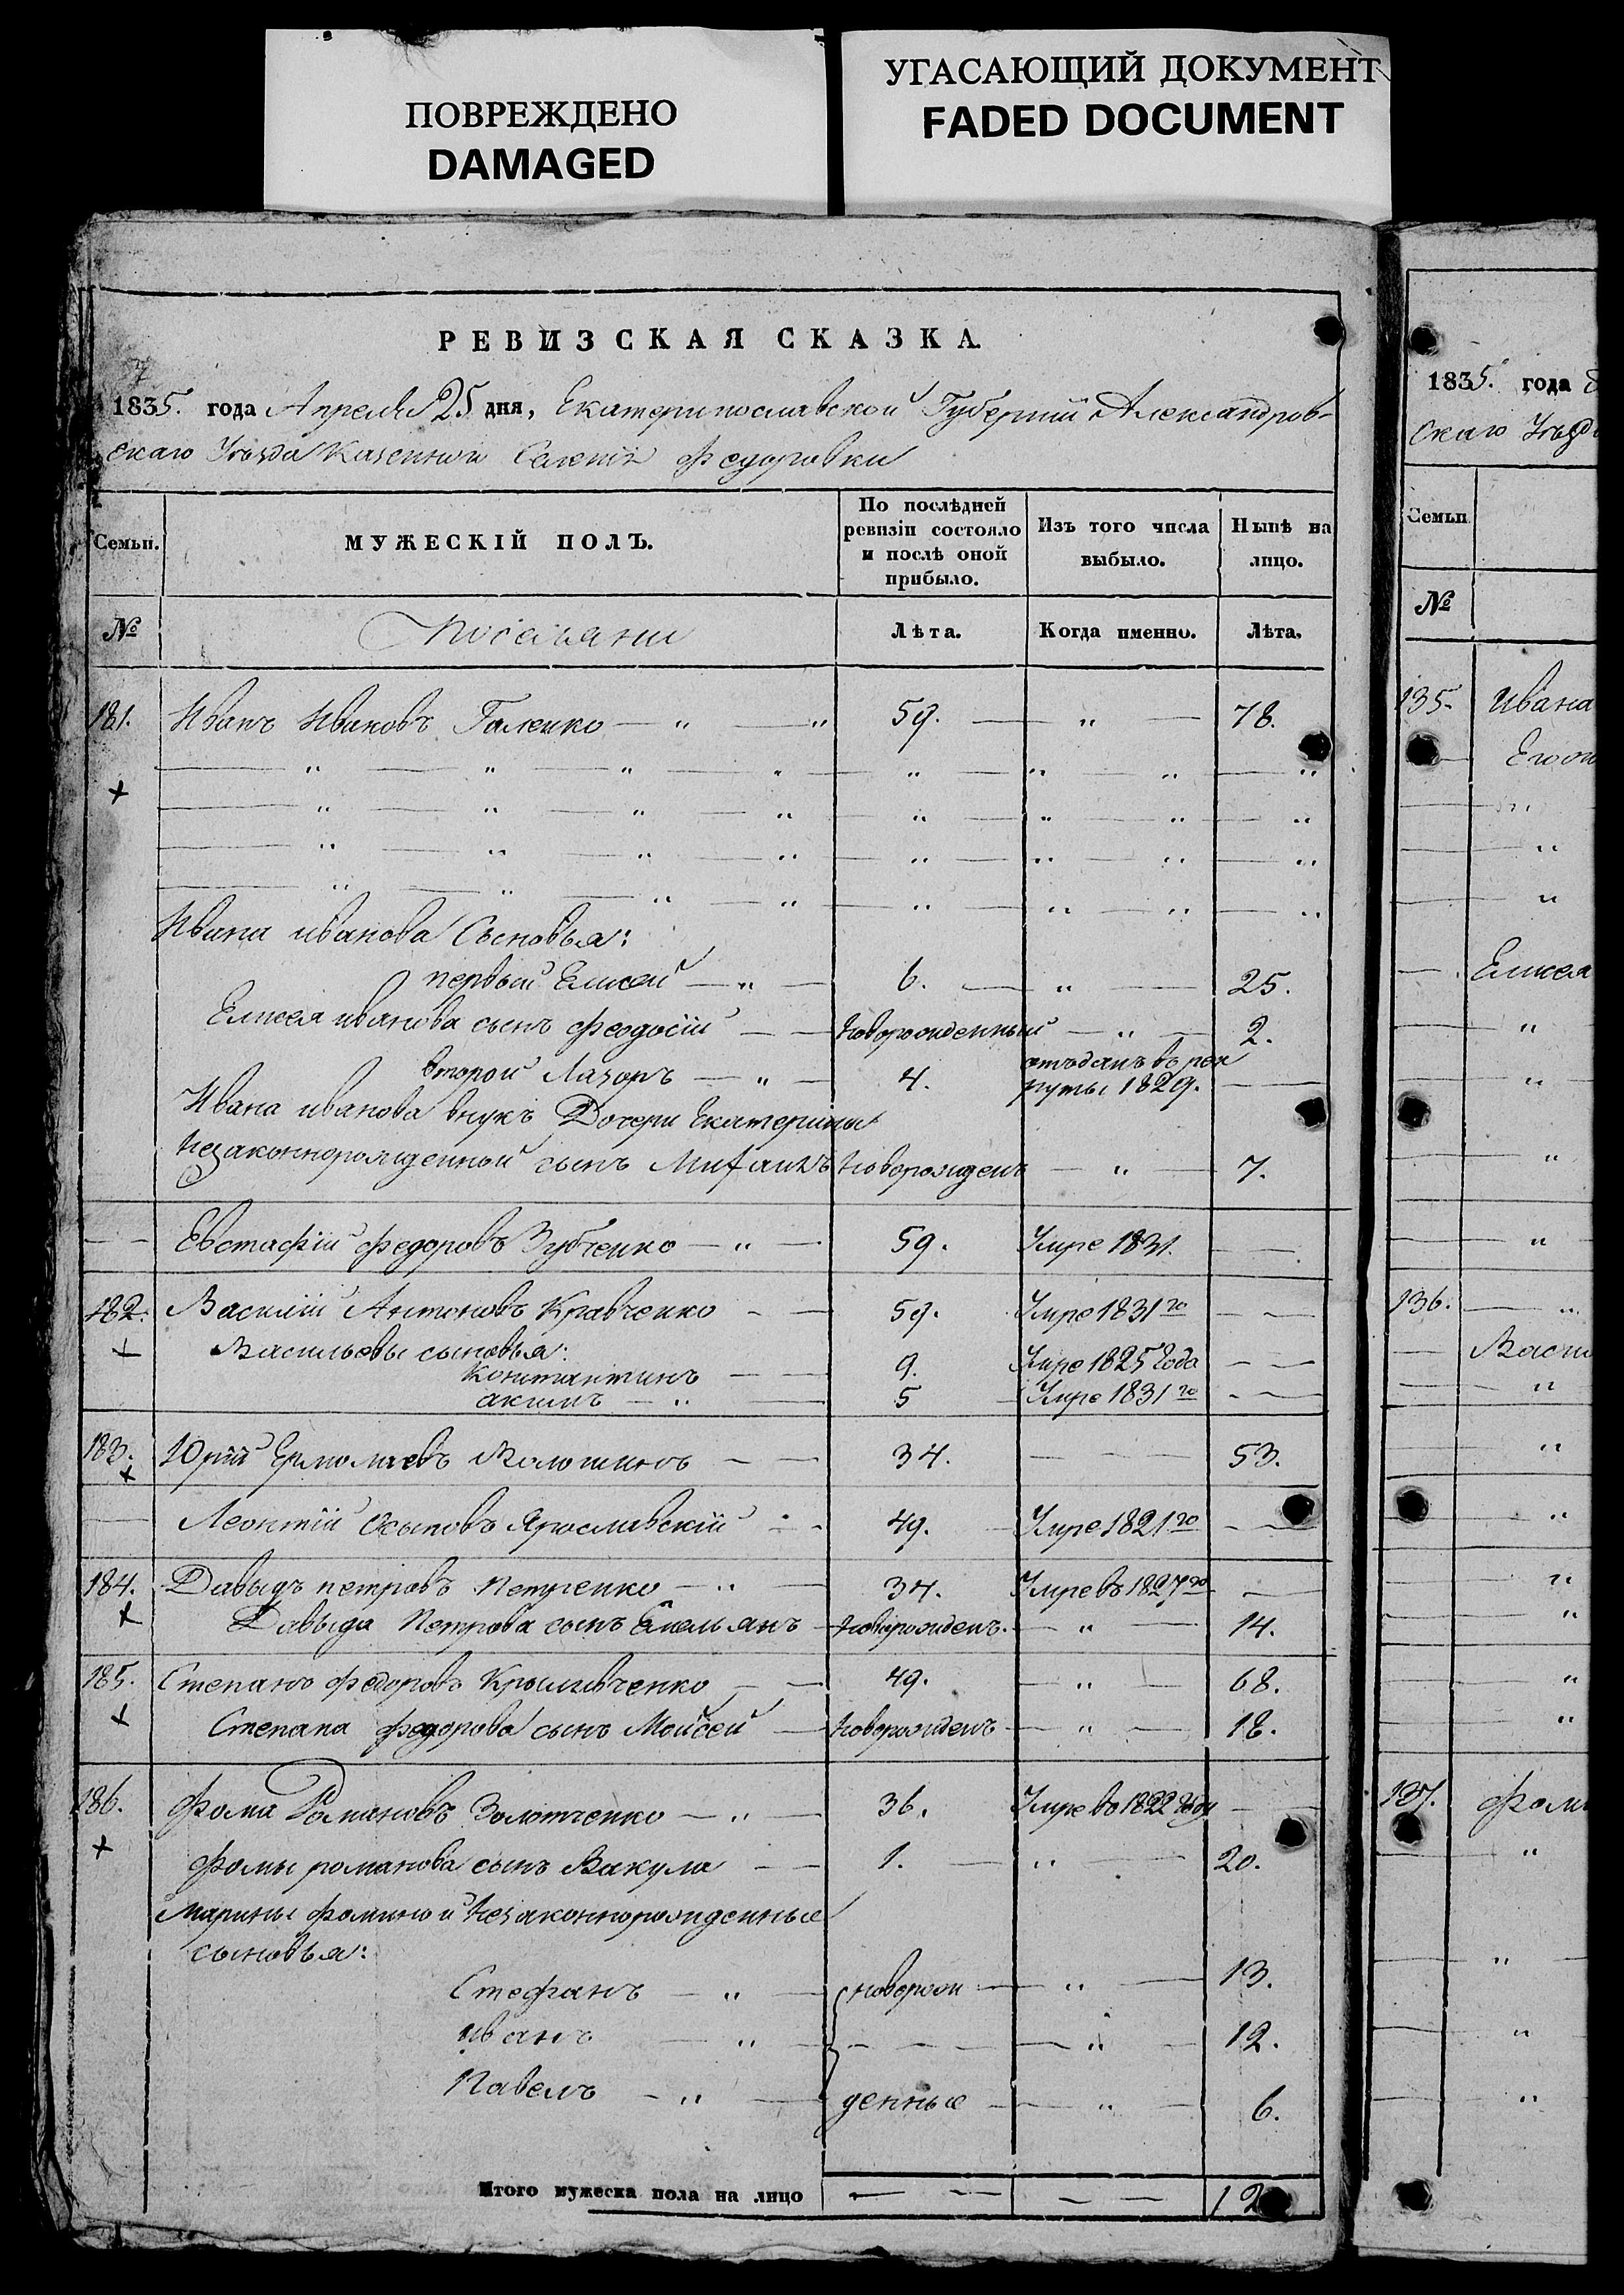 ПОВРЕЖДЕНО
DAMAGED
УГАСАЮЩИЙ ДОКУМЕНТ
FADED DOCUMENT
РЕВИЗСКАЯ СКАЗКА
1835. года Апреля 25 дня, Екатеринославской Губернии Александров-
скаго Уѣзда Казенной Селенія Федоровки
Семьи. МУЖЕСКІЙ ПОЛЪ. По послѣдней ревизіи состояло и послѣ оной прибыло. Изъ того числа выбыло. Нынѣ на лицо.
№ Поселяни Лѣта. Когда именно. Лѣта.
181. Иванъ Ивановъ Галенко — „ — „ 59. — „ — 78.
Ивана иванова Сыновья:
первый Елисей — „ — 6. — „ — 25.
Елисея иванова сынъ Феодосій — — Новорожденный — „ — 2.
второй Лазорь — „ — 4. отъданъ въ рек
руты 1829. — —
Ивана иванова внукъ Дочери Екатерины
Незаконнорожденной сынъ Михаилъ Новорожденъ — „ — 7.
— — Евстафій федоровъ Зубченко — „ — 59. Умре 1831. — —
182. Василій Антоновъ Кравченко — — 59. Умре 1831 го — —
Васильевы сыновья:
Константинъ — — 9. Умре 1825 Года — —
акимъ — „ — 5 Умре 1831 го — —
183. Юрій Ермолаевъ Волошинъ — — 34. — — — 53.
— Леонтій Осыповъ Ярославскій — „ — 49. Умре 1821 го — —
184. Давыдъ петровъ Петренко — „ — 34. Умре въ 1827 го —
Давыда Петрова сынъ Емельянъ — Новорожденъ. — „ — 14.
185. Степанъ федоровъ Крыливченко — — 49. — „ — 68.
Степана федорова сынъ Мойсей — Новорожденъ — „ — 18.
186. Фома Романовъ Золотченко — „ — 36. Умре въ 1822 Году — —
Фомы романова сынъ Вакула — — 1. — „ — 20.
Марины фоминой Незаконнорожденные
сыновья:
Стефанъ — „ — новорож — „ — 13.
иванъ — „ — — — „ — 12.
Павелъ — „ — денные — „ — 6.
Итого мужеска пола на лицо — — — — 12
1835. года
скаго Уѣзд
Семьи
№
135. Ивана
Елисея
136.
Васи
137. Фом